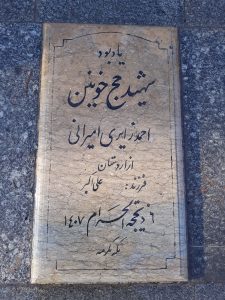 یادبود
شهید حج خونین
احمد زایری امیرانی
از اردستان
فرزند: علی اکبر
۶ ذیحجه الحرام ۱۴۰۷
مکه مکرمه